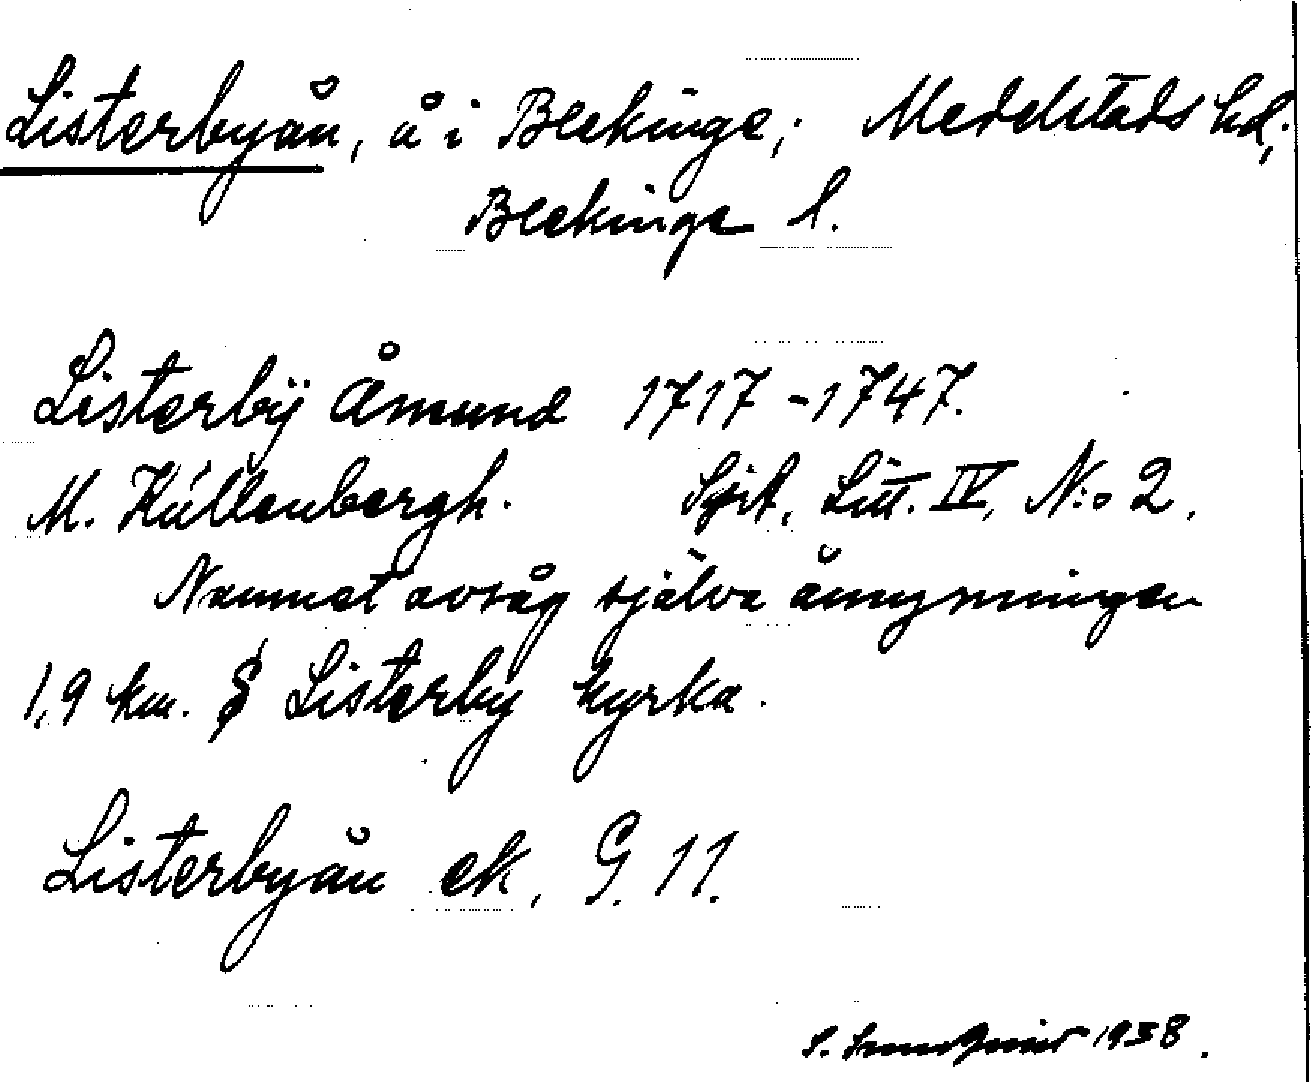 Listerbyån, å i Blekinge; Medelstads hd,
Blekinge l.
Listerbÿ Åmund 1717-1747.
M. Kúllenbergh. SjöA, Litt. IV, N:o 2.
Namnet avsåg själva åmynningen
1,9 km. S Listerby kyrka.
Listerbyån ek, G. 11.
S. 1938.